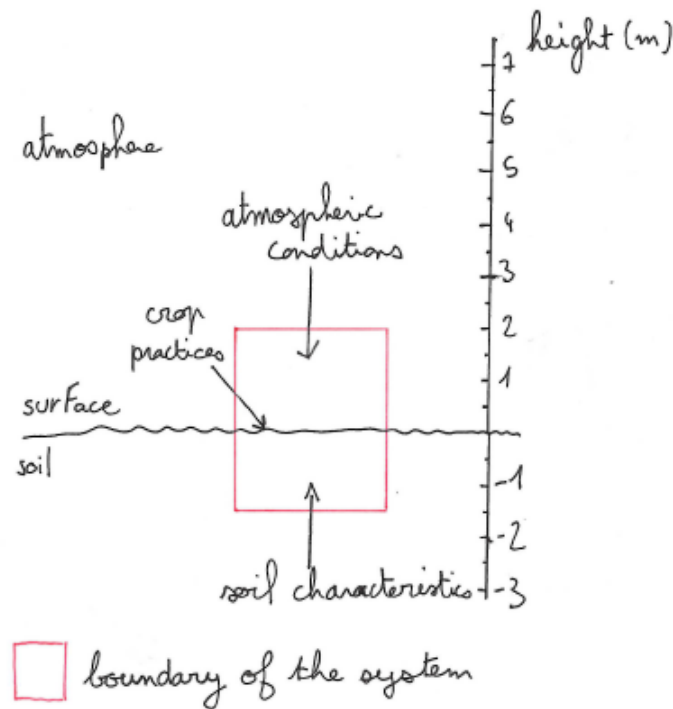 height (m)
7
6
atmosphere
5
atmospheric
conditions
4
3
crop
practices
2
1
surface
soil
-1
-2
soil characteristics
-3
boundary of the system